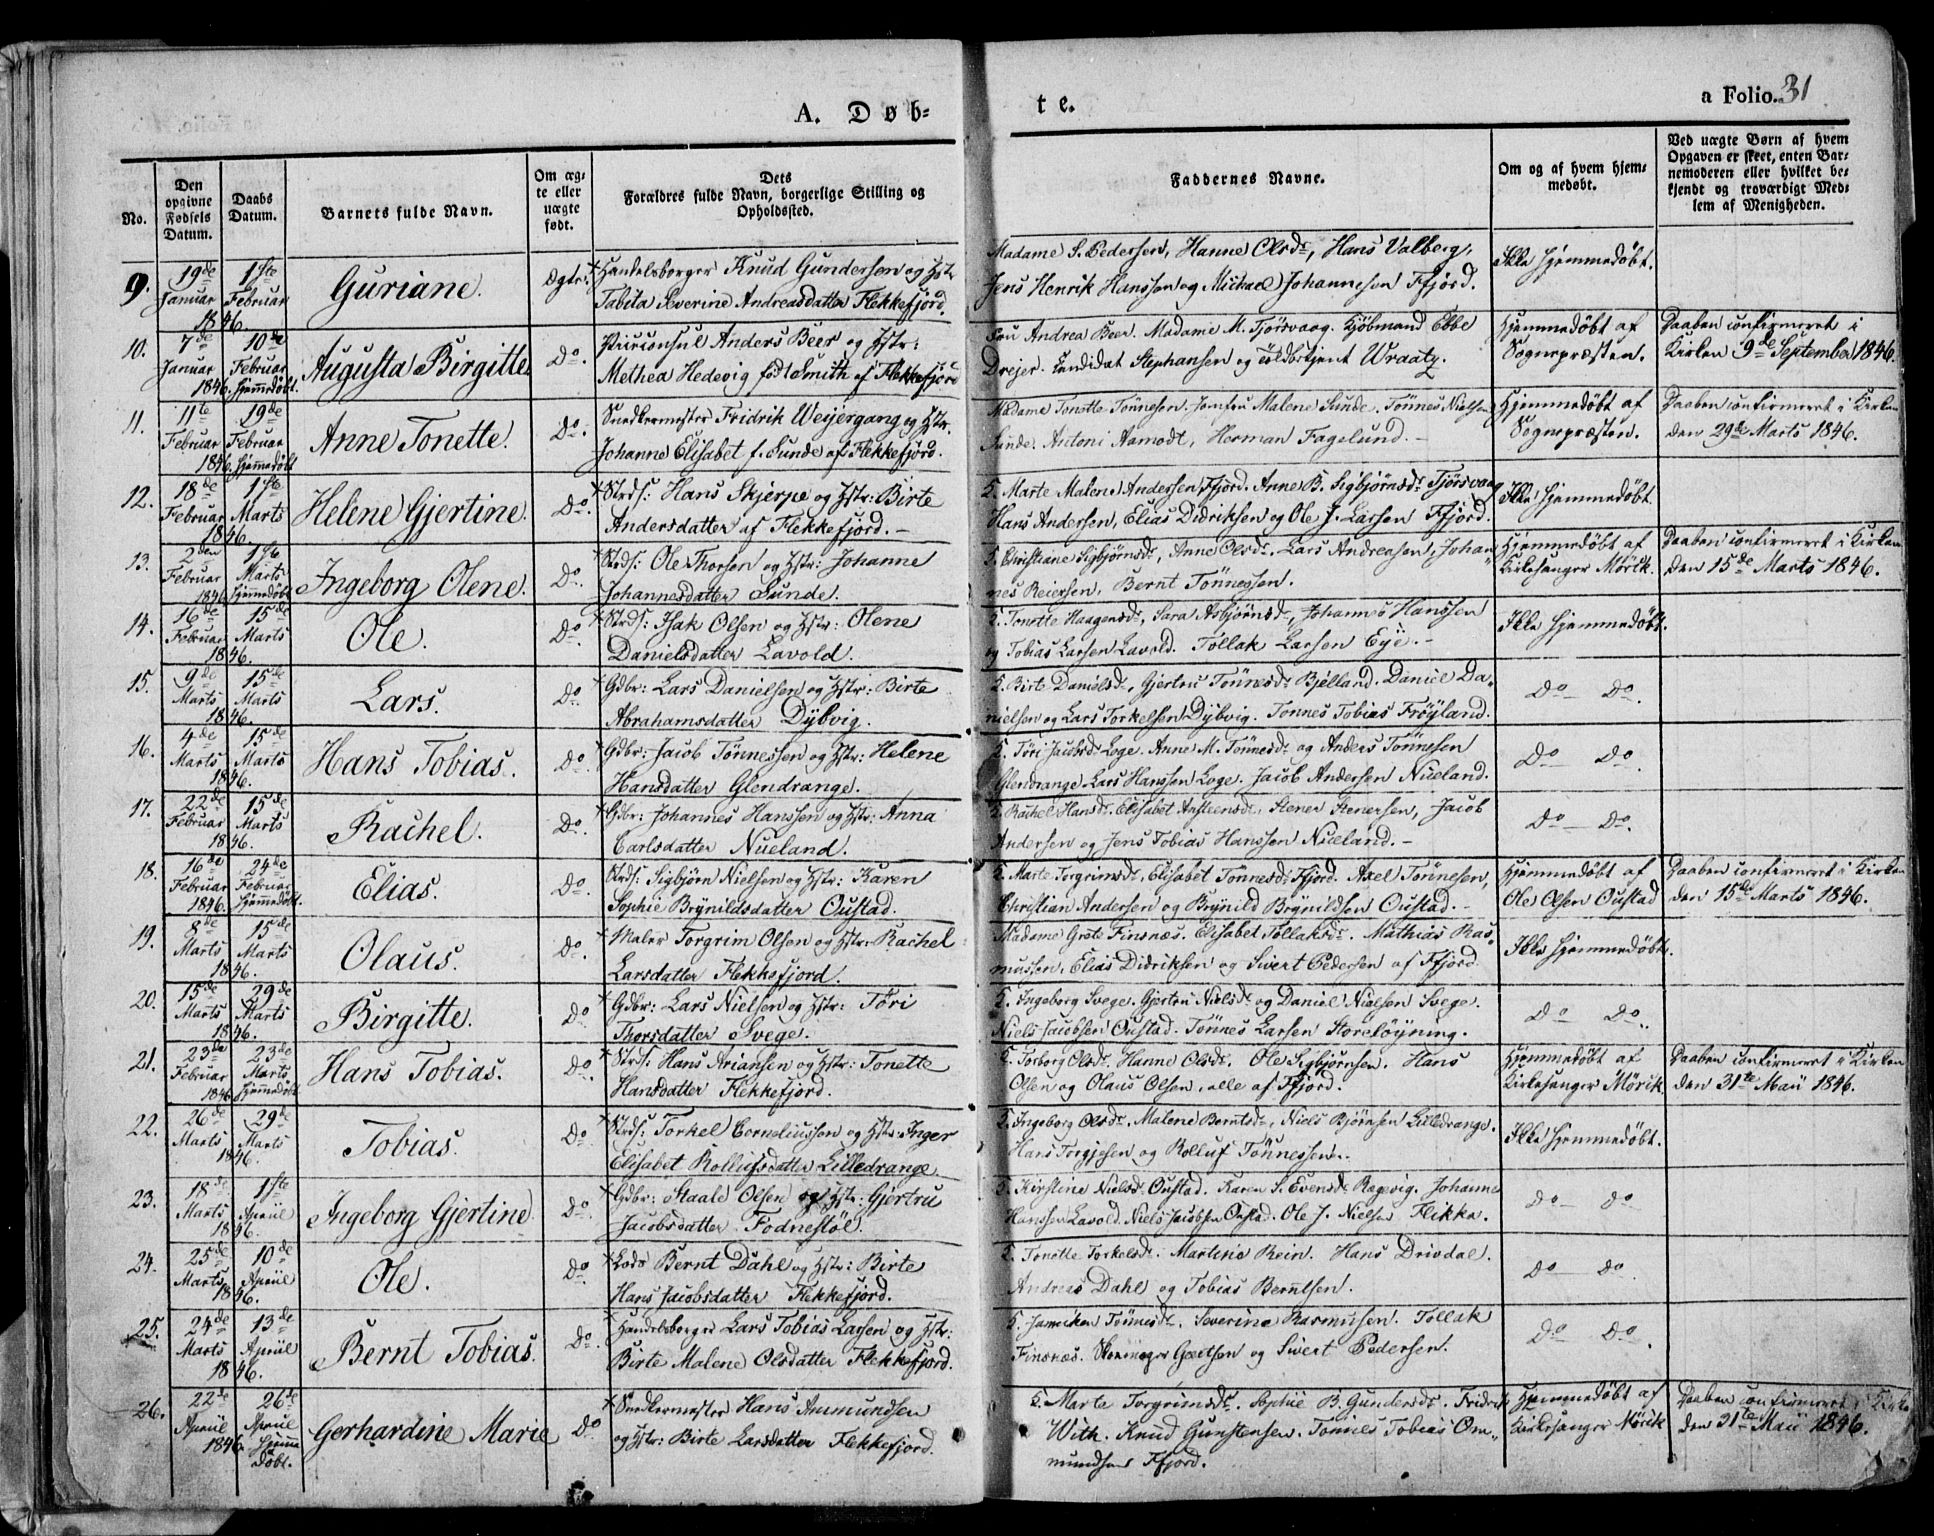 A. Døb=
te.
a Folio. 31
No.
Den opgivne Fødsels Datum.
Daabs Datum.
Barnets fulde Navn.
Om ægte eller uægte født.
Dets Forældres fulde Navn, borgerlige Stilling og Opholdssted.
Faddernes Navne.
Om og af hvem hjemmedøbt.
Ved uægte Børn af hvem Opgaven er skeet, enten Barnemoderen eller hvilket bekjendt og troværdigt Medlem af Menigheden.
9. 19de Januar 1846. 1ste Februar Guriane. Ægte.
Handelsborger Knud Gundersen og Hstr
Tabita Severine Andreasdatter Flekkefjord.
Madame S. Pedersen, Hanne Olsdr, Hans Valberg,
Jens Henrik Hanssen og Michael Johannesen Ffjord.
Ikke hjemmedøbt.
10. 7de Januar 1846. 10de Februar hjemmedøbt. Augusta Birgitte Do.
Anders Beer og Hstr:
Methea Hedevig født Smith af Flekkefjord
Fru Andrea Beer. Madame M. Tjørsvaag. Kjøbmand Ebbe
Drejer. Candidat Stephansen og Toldbetjent Wraatz.
Hjemmedøbt af
Sognepræsten.
Daaben confirmeret i
Kirken 9de September 1846.
11. 11te Februar 1846. 19de Februar hjemmedøbt Anne Tonette. Do.
Snedkermester Fridrik Weyergang og Hstr.
Johanne Elisabet f. Sunde af Flekkefjord.
Madame Tonette Tønnesen. Jomfru Malene Sunde. Tønnes Nielsen
Sunde. Antoni Aamodt, Herman Fagelund.
Hjemmedøbt af
Sognepræsten.
Daaben confirmeret i Kirken
den 29de Marts 1846.
12. 18de Februar 1846. 1ste Marts Helene Gjertine. Do.
Strds: Hans Skjerpe og Hstr: Birte
Andersdatter af Flekkefjord.
5. Marte Malene Andersen Ffjord. Anne B. Sigbjørnsdr Tjørsvaag
Hans Andersen, Elias Didriksen og Ole J. Larsen Ffjord.
Ikke hjemmedøbt.
13. 2den Februar 1846. 1ste Marts hjemmedøbt Ingeborg Olene. Do.
Strds: Ole Thorsen og Hstr: Johanne
Johannesdatter Sunde.
5. Christiane Sigbjørnsdr, Anne Olsdr. Lars Andreasen, Johan=
nes Reiersen, Bernt Tønnessen.
Hjemmedøbt af
Kirkesanger Mørik.
Daaben confirmeret i Kirken
den 15de Marts 1846.
14. 16de Februar 1846. 15de Marts Ole. Do
Strds: Isak Olsen og Hstr: Olene
Danielsdatter Lavold.
5. Tonette Haagensdr, Sara Asbjørnsdr, Johannes Hanssen
og Tobias Larsen Lavold. Tollak Larsen Eye.
Ikke hjemmedøbt.
15. 9de Marts 1846. 15de Marts Lars. Do.
Gdbr: Lars Danielsen og Hstr: Birte
Abrahamsdatter Dybvig.
5. Birte Danielsdr, Gjertru Tønnesdr Bjelland. Daniel Da=
nielsen og Lars Torkelsen Dybvig. Tønnes Tobias Frøyland.
Do Do.
16. 4de Marts 1846. 15de Marts Hans Tobias. Do.
Gdbr: Jacob Tønnessen og Hstr: Helene
Hansdatter Glendrange.
5. Tøri Jacobsdr Loge. Anne M. Tønnesdr og Anders Tønnesen
Glendrange. Lars Hanssen Loge. Jacob Andersen Nueland.
Do Do.
17. 22de Februar 1846. 15de Marts Rachel. Do.
Gdbr: Johannes Hanssen og Hstr: Anna
Carlsdatter Nueland.
5. Rachel Hansdr. Elisabet Anstensdr. Stener Stenersen, Jacob
Andersen og Jens Tobias Hanssen Nueland.
Do Do.
18. 16de Februar 1846. 24de Februar hjemmedøbt. Elias. Do.
Strds: Sigbjørn Nielsen og Hstr: Karen
Sophie Brynildsdatter Oustad.
5. Marte Torgrimsdr, Elisabet Tønnesdr Ffjord. Axel Tønnesen,
Christian Andersen og Brynild Brynildsen Oustad.
Hjemmedøbt af
Ole Olsen Oustad
Daaben confirmeret i Kirken
den 15de Marts 1846.
19. 8de Marts 1846. 15de Marts Olaus. Do.
Maler Torgrim Olsen og Hstr: Rachel
Larsdatter Flekkefjord.
Madame Grete Finsnæs. Elisabet Tollaksdr. Mathias Ras=
mussen, Elias Didriksen og Sivert Pedersen af Ffjord
Ikke hjemmedøbt.
20. 15de Marts 1846. 29de Marts Birgitte. Do
Gdbr: Lars Nielsen og Hstr: Tøri
Thorsdatter Svege.
5. Ingeborg Svege. Gjertru Nielsdr og Daniel Nielsen Svege.
Niels Jacobsen Oustad. Tønnes Larsen Storeløyning.
Do Do.
21. 23de Februar 1846. 23de Marts hjemmedøbt Hans Tobias. Do.
Strds: Hans Ariansen og Hstr: Tonette
Hansdatter Flekkefjord.
5. Torborg Olsdr. Hanne Olsdr. Ole Sigbjørnsen. Hans
Olsen og Olaus Olsen, alle af Ffjord.
Hjemmedøbt af
Kirkesanger Mørik
Daaben confirmeret i Kirken
den 31te Maii 1846.
22. 26de Marts 1846. 29de Marts Tobias. Do
Strds: Torkel Corneliussen og Hstr: Inger
Elisabet Rollufsdatter Lilledrange.
5. Ingeborg Olsdr. Malene Berntsdr, Niels Bjørnsen Lilledrange.
Hans Torgjesen og Rolluf Tønnessen.
Ikke hjemmedøbt.
23. 18de Marts 1846. 1ste Apriil Ingeborg Gjertine Do.
Gdbr: Staale Olsen og Hstr: Gjertru
Jacobsdatter Fodnestøl.
5. Kirstine Nielsdr Oustad. Karen S. Evensdr Ragevig. Johanne
Hanssen Lavold. Niels Jacobsen Oustad. Ole J. Nielsen Flikka.
Do Do.
24. 25de Marts 1846. 10de Apriil Ole. Do.
Lods Bernt Dahl og Hstr: Birte
Hans Jacobsdatter Flekkefjord.
5. Tonette Torkelsdr. Martine Rein. Hans Drivdal.
Andreas Dahl og Tobias Berntsen.
Do Do.
25. 24de Marts 1846. 13de Apriil Bernt Tobias. Do.
Handelsborger Lars Tobias Larsen og Hstr:
Birte Malene Olsdatter Flekkefjord.
5. Jamiken Tønnesdr. Severine Rasmusen. Tollak
Finsnæs. Geertsen og Sivert Pedersen.
Do Do.
26. 22de Apriil 1846. 26de Apriil hjemmedøbt. Gerhardine Marie Do
Snedkermester Hans Ammundsen
og Hstr: Birte Larsdatter Flekkefjord.
5. Marte Torgrimsdr. Sophie B. Gundersdr. Fridrik
With. Knud Gunstensen. Tønnes Tobias Om=
mundsen Ffjord.
Hjemmedøbt af
Kirkesanger Mørik
Daaben confirmeret i Kirken
den 31te Maii 1846.